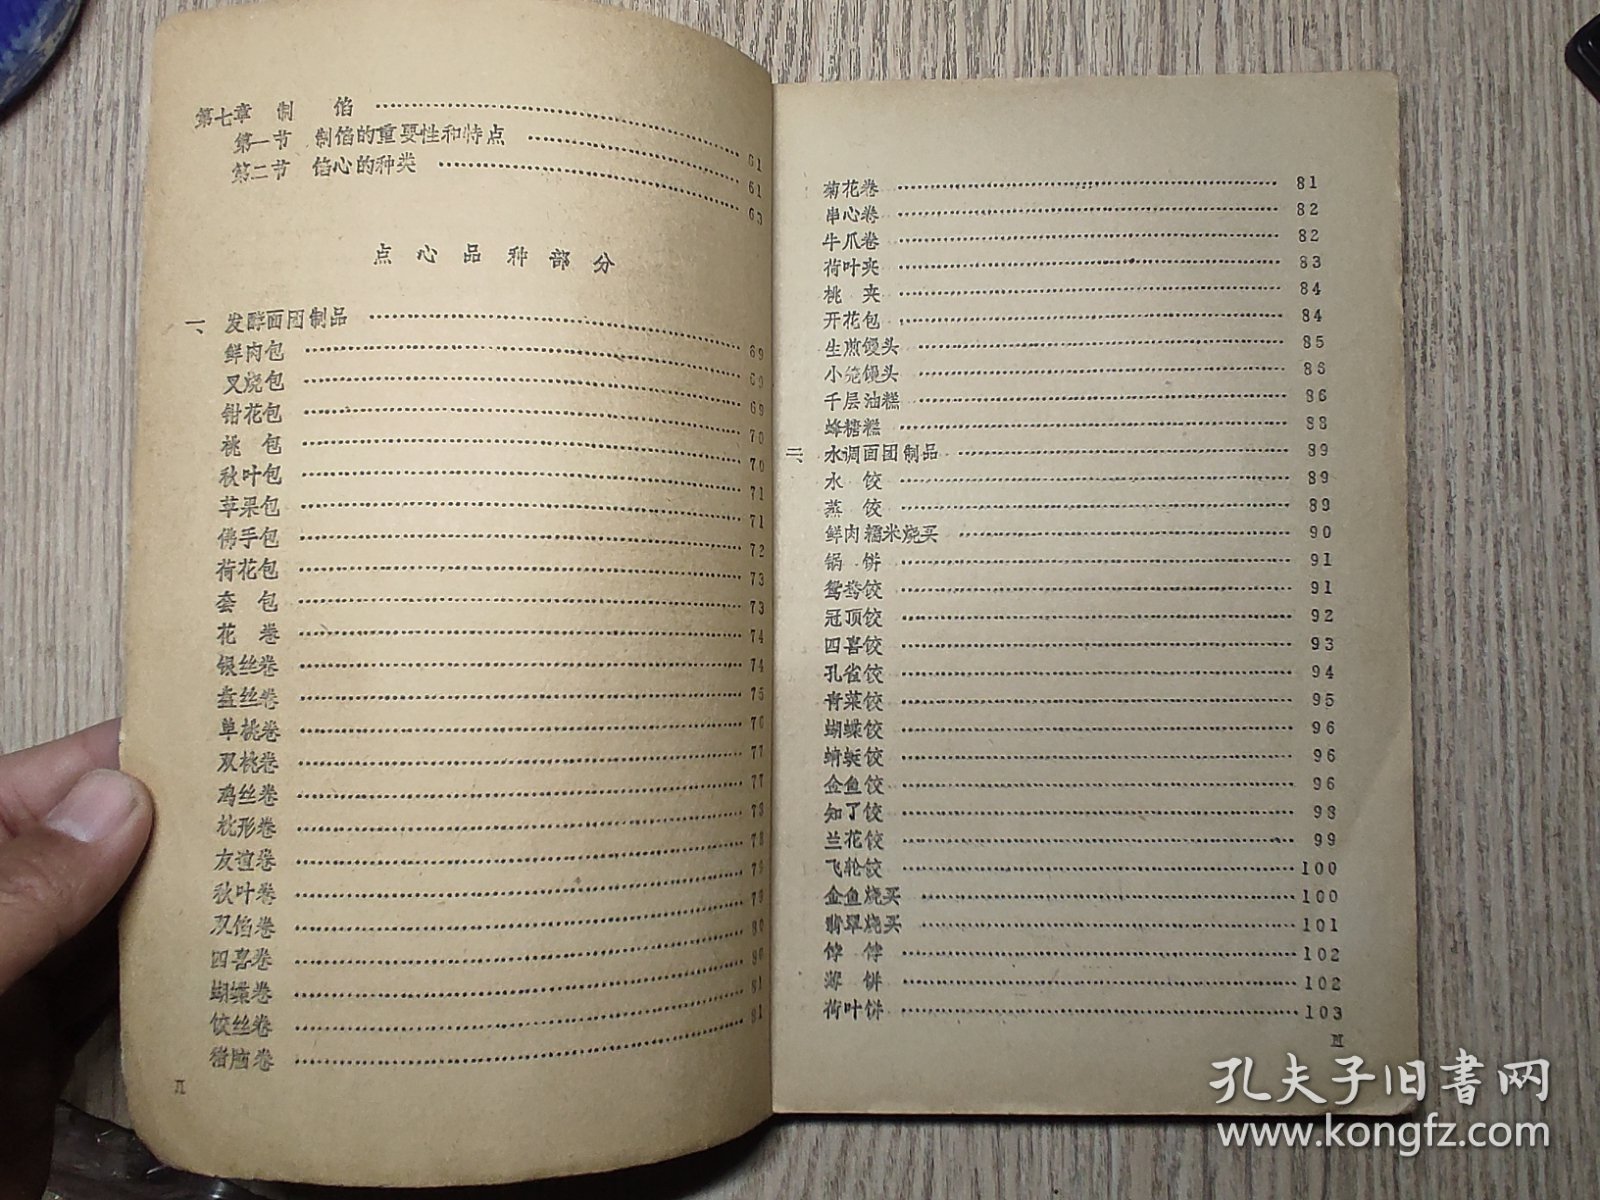 第七章 制 馅 …… 61
第一节 制馅的重要性和特点 …… 61
第二节 馅心的种类 …… 63
点心品种部分
一、发酵面团制品 …… 69
鲜肉包 …… 69
叉烧包 …… 69
钳花包 …… 70
桃 包 …… 70
秋叶包 …… 71
苹果包 …… 71
佛手包 …… 72
荷花包 …… 73
套 包 …… 73
花 卷 …… 74
银丝卷 …… 74
盘丝卷 …… 75
单桃卷 …… 76
双桃卷 …… 77
鸡丝卷 …… 77
枕形卷 …… 78
友谊卷 …… 78
秋叶卷 …… 79
双馅卷 …… 79
四喜卷 …… 80
蝴蝶卷 …… 80
饺丝卷 …… 81
猪脑卷 …… 81
II
菊花卷 …… 81
串心卷 …… 82
牛爪卷 …… 82
荷叶夹 …… 83
桃 夹 …… 84
开花包 …… 84
生煎馒头 …… 85
小笼馒头 …… 86
千层油糕 …… 86
蜂糖糕 …… 88
二、水调面团制品 …… 89
水 饺 …… 89
蒸 饺 …… 89
鲜肉糯米烧买 …… 90
锅 饼 …… 91
鸳鸯饺 …… 91
冠顶饺 …… 92
四喜饺 …… 93
孔雀饺 …… 94
青菜饺 …… 95
蝴蝶饺 …… 96
蜻蜓饺 …… 96
金鱼饺 …… 96
知了饺 …… 98
兰花饺 …… 99
飞轮饺 …… 100
金鱼烧买 …… 100
翡翠烧买 …… 101
饽 饽 …… 102
薄 饼 …… 102
荷叶饼 …… 103
III
孔夫子旧书网
www.kongfz.com